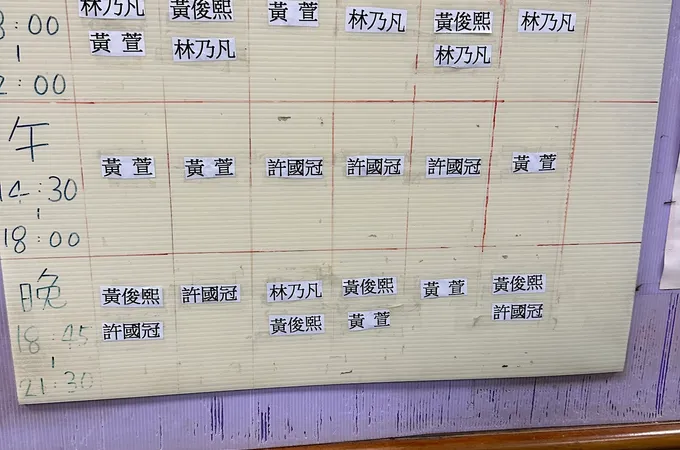 8:00 林乃凡 黃俊熙 黃 萱 林乃凡 黃俊熙 林乃凡
黃 萱 林乃凡 林乃凡
2:00
午
14:30 黃 萱 黃 萱 許國冠 許國冠 許國冠 黃 萱
18:00
晚 黃俊熙 許國冠 林乃凡 黃俊熙 黃 萱 黃俊熙
18:45 許國冠 黃俊熙 黃 萱 許國冠
21:30